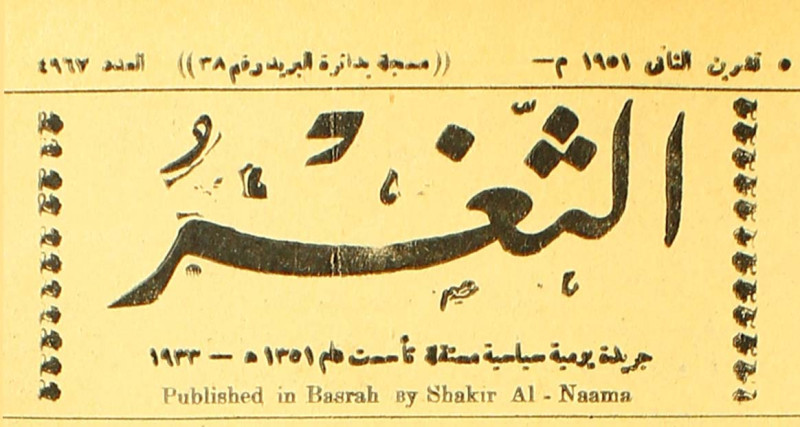 ٥ تشرين الثاني ١٩٥١ م— ((مسجلة بدائرة البريد رقم ٣٨)) العدد ٤٩٦٧
الثَّغْرُ
جريدة يومية سياسية مستقلة تأسست عام ١٣٥١ ه — ١٩٣٣
Published in Basrah By Shakir Al - Naama